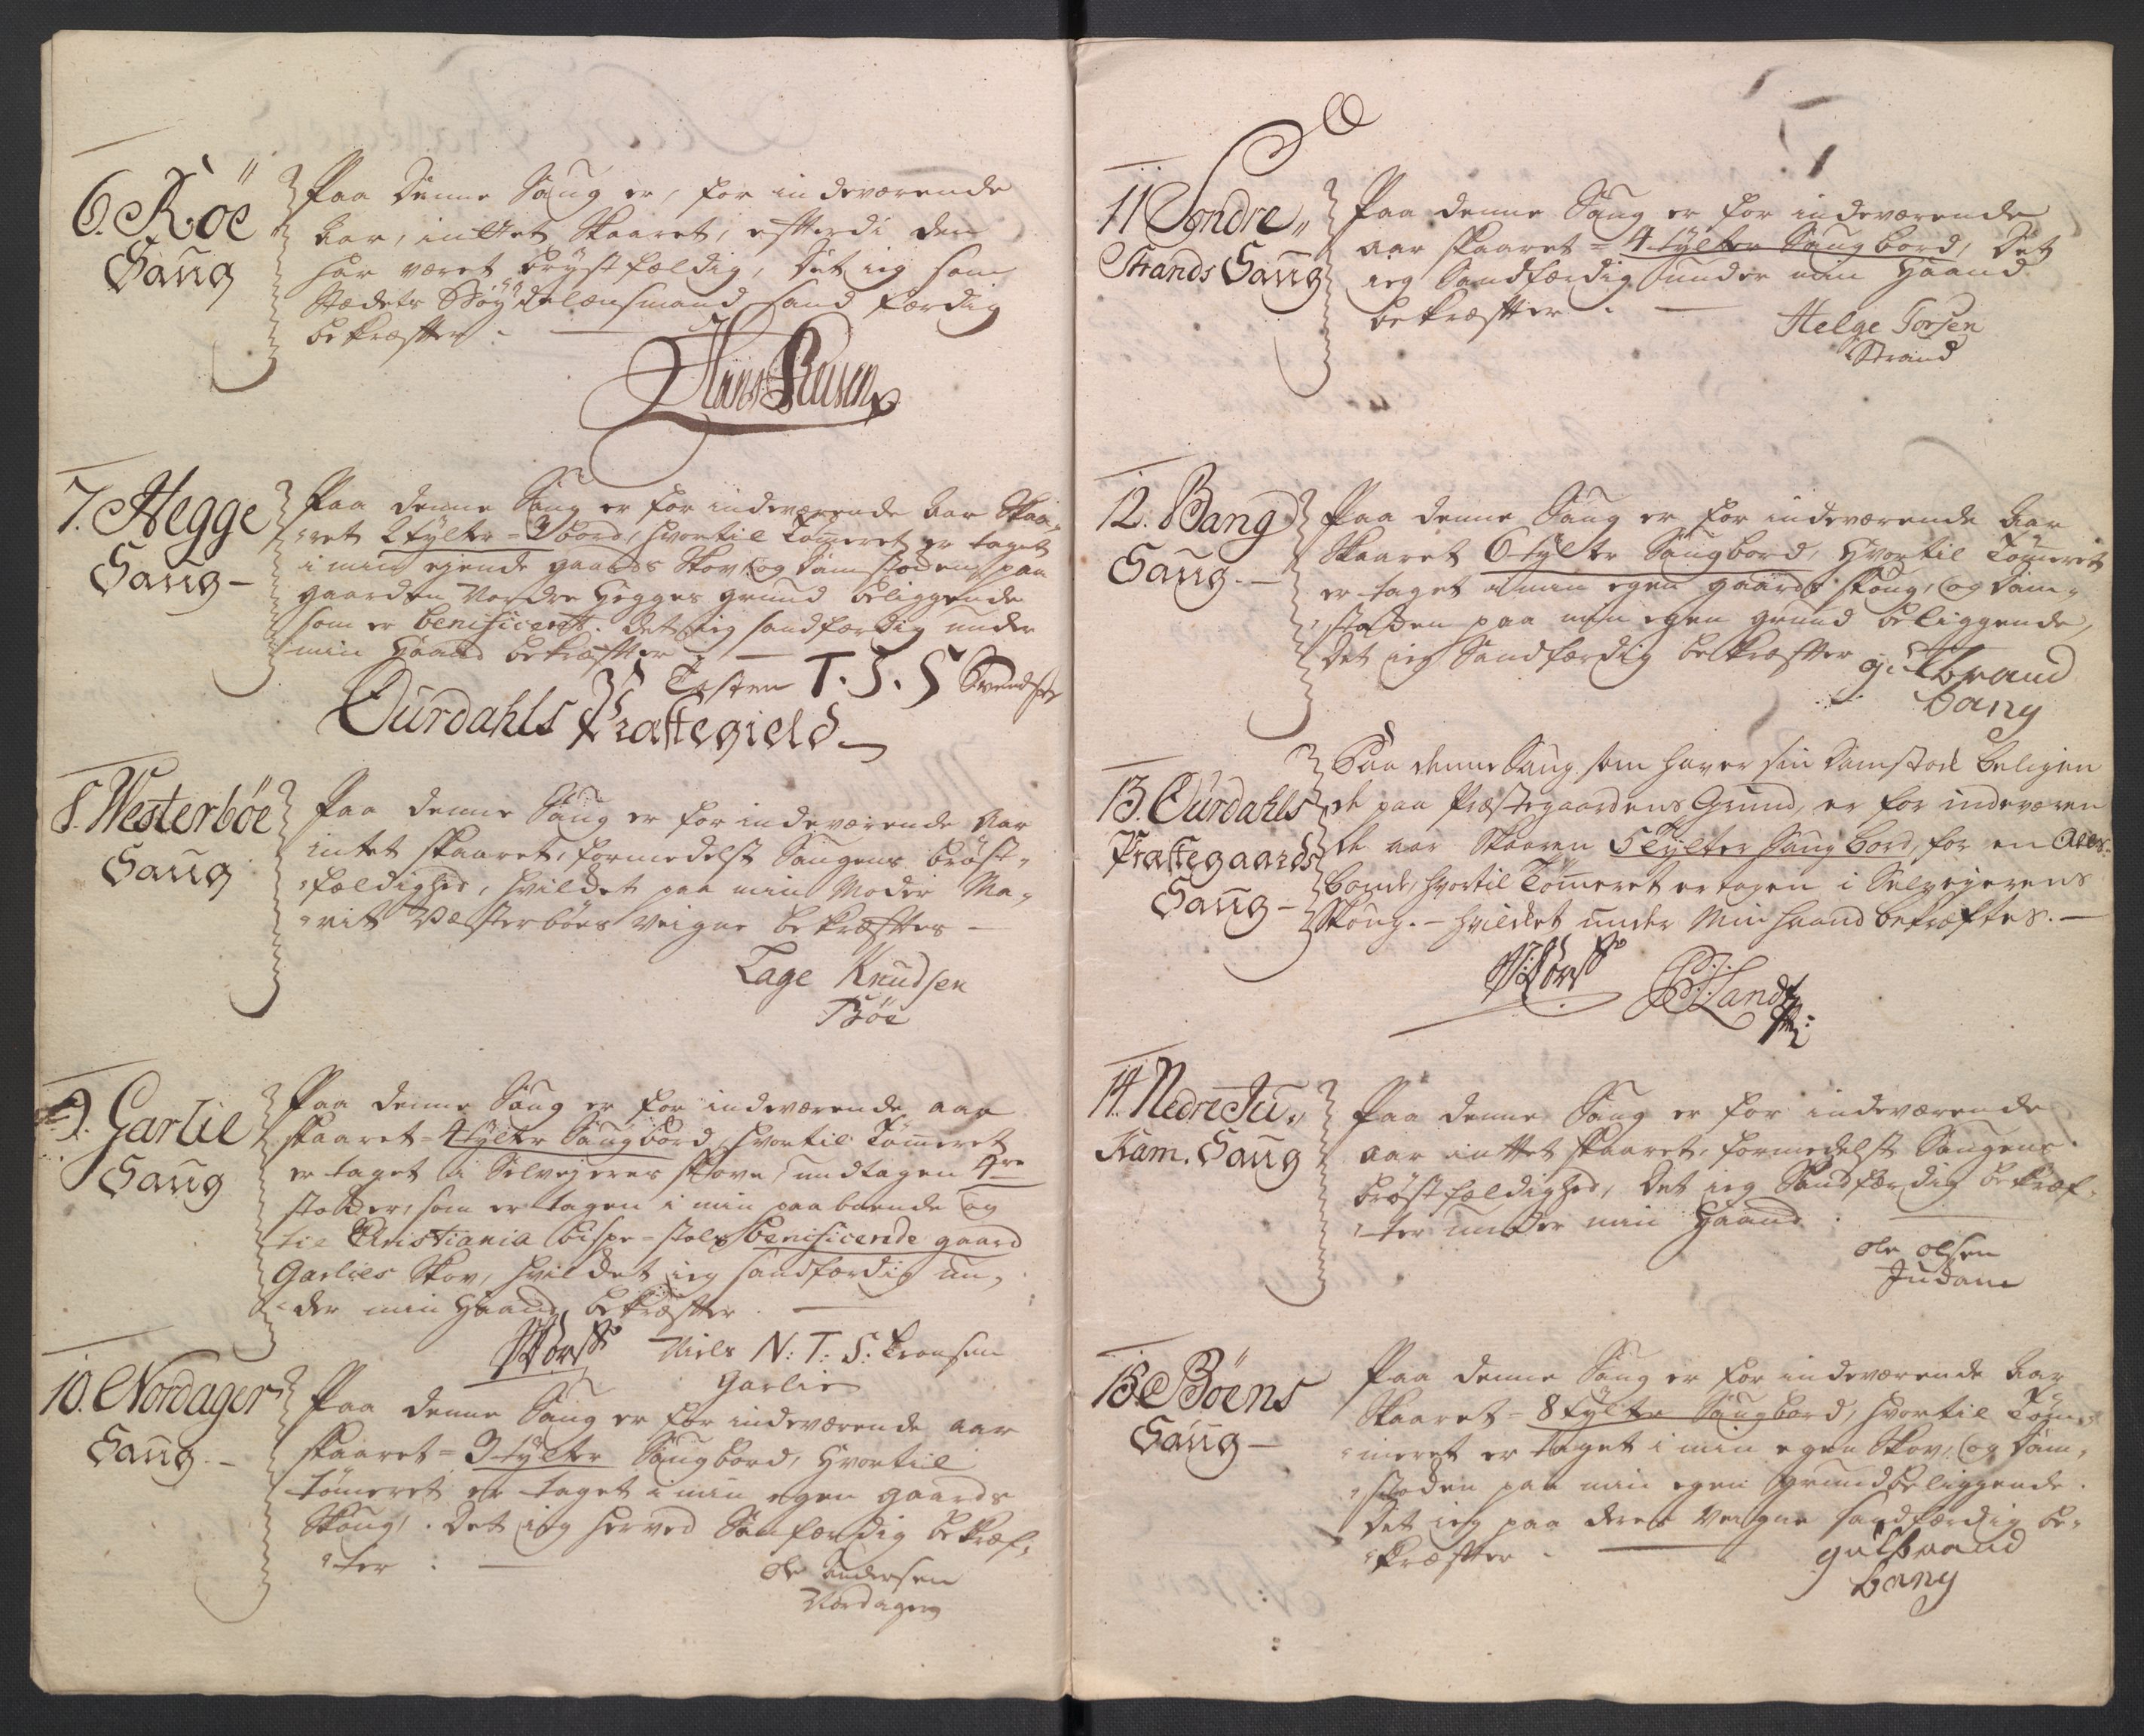 6. Röe
Saug
Paa Denne Saug er, for indeværende
Aar, inttet Skaaret, efterdi den
har været brystfældig, Det ieg som
Stædets Bøydelensmand sandfærdig
bekræfter.
7. Hegge
Saug
Paa denne Saug er for indeværende Aar Skaa-
ret 2 tylter = 3 bord, hvortil Tømeret er taget
i min ejende gaards Skov, og damstoden paa
gaarden Nordre Hegges grund beliggende
som er beneficeret. Det ieg sandfærdig under
min Haand bekræfter
Tosten T. S. S Svendsen
Ourdahls Præstegield
8. Westerbøe
Saug
Paa denne Saug er for indeværende Aar
intet skaaret, formedelst Saugens brøst-
fældighed, hvildet paa min Moder Ma-
rit Vesterbøes Veigne bekræftes
Tage Knudsen
Bøe
9. Garlie
Saug
Paa denne Saug er for indeværende aar
skaaret = 4 tylter Saugbord, hvortil Tømeret
er taget i Selvejeres skove, undtagen 4re
stokker, som er tagen i min paaboende og
til Christiania bispe-stols beneficerede gaard
Garlies Skov, hvildet ieg sandfærdig un-
der min Haand bekræfter.
Niels N: T: S: Tronsen
Garlie
10. Nordager
Saug
Paa denne Saug er for indeværende aar
skaaret = 3 tylter Saugbord, hvortil
tømeret er taget i min egen gaards
Skoug. Det ieg herved Sanfærdig bekræf-
ter.
Ole Andersen
Nordager
11 Søndre
Strands Saug
Paa denne Saug er for indeværende
aar skaaret = 4 tylter Saugbord, Det
ieg Sandfærdig under min Haand
bekræfter.
Helge Torsen
Strand
12. Bang
Saug
Paa denne Saug er for indeværende Aar
Skaaret 6 tylter Saugbord, Hvortil Tømeret
er taget i min egen gaards skoug, og dam-
stoden paa min egen grund beliggende,
Det ieg Sandfærdig bekræfter
gulbrand
bang
13. Ourdahls
Præstegaards
Saug
Paa denne Saug som haver sin Damstod beligen
de paa Præstegaardens Grund, er for indeværen
de aar Skaaren 5 Tylter Saug Bord, for en
borde, hvortil Tømeret er tagen i Selvejerens
Skoug. - hvildet under Min haand bekræftes.
14. Nedre Ju-
kam. Saug
Paa denne Saug er for indeværende
Aar inttet skaaret, formedelst Saugens
brøstfældighed, Det ieg Sandfærdig bekræf-
ter under min Haand.
Ole Olsen
Judam
15. Böens
Saug
Paa denne Saug er for indeværende Aar
Skaaret = 8 tylter Saugbord, hvortil Tøm-
meret er taget i min egen Skov, og dam-
stoden paa min egen grund beliggende.
Det ieg paa deres Veigne sandfærdig be-
kræfter
gulbrand
bang